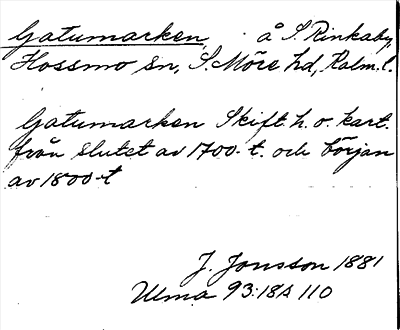 Gatumarken, å S. Rinkaby,
Hossmo sn, S. Möre hd, Kalm. l.
Gatumarken Skift. h. o. kart.
från slutet av 1700-t. och början
av 1800-t
J. Jonsson 1881
Ulma 93:18A 110